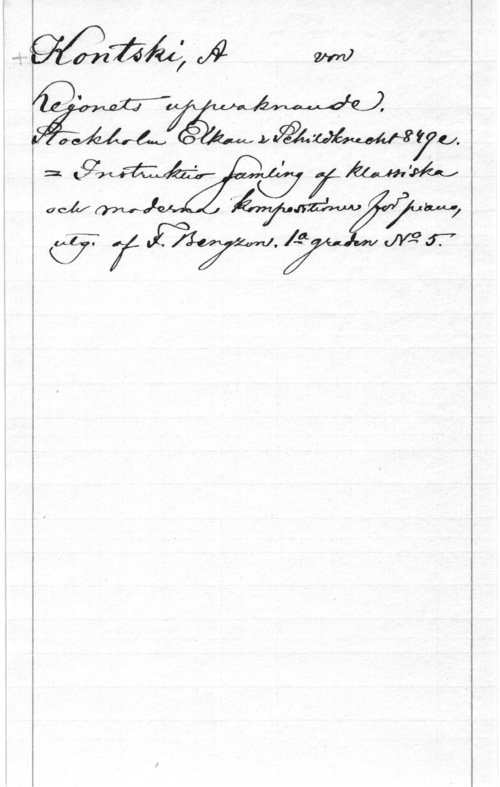 Kontski, A von
Lejonets uppvaknande.
Stockholm Elkan & Schildknecht 849 e.
= Instruktiv samling af klassiska
och moderna kompositioner för piano,
utg. af F. Bengzon. 1ª graden Nº 5.